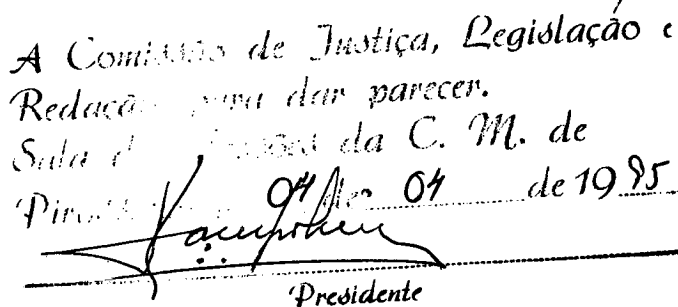 A Comissão de Justiça, Legislação e
Redação para dar parecer.
Sala Sessões da C. M. de
04 de 04 de 1985
Presidente